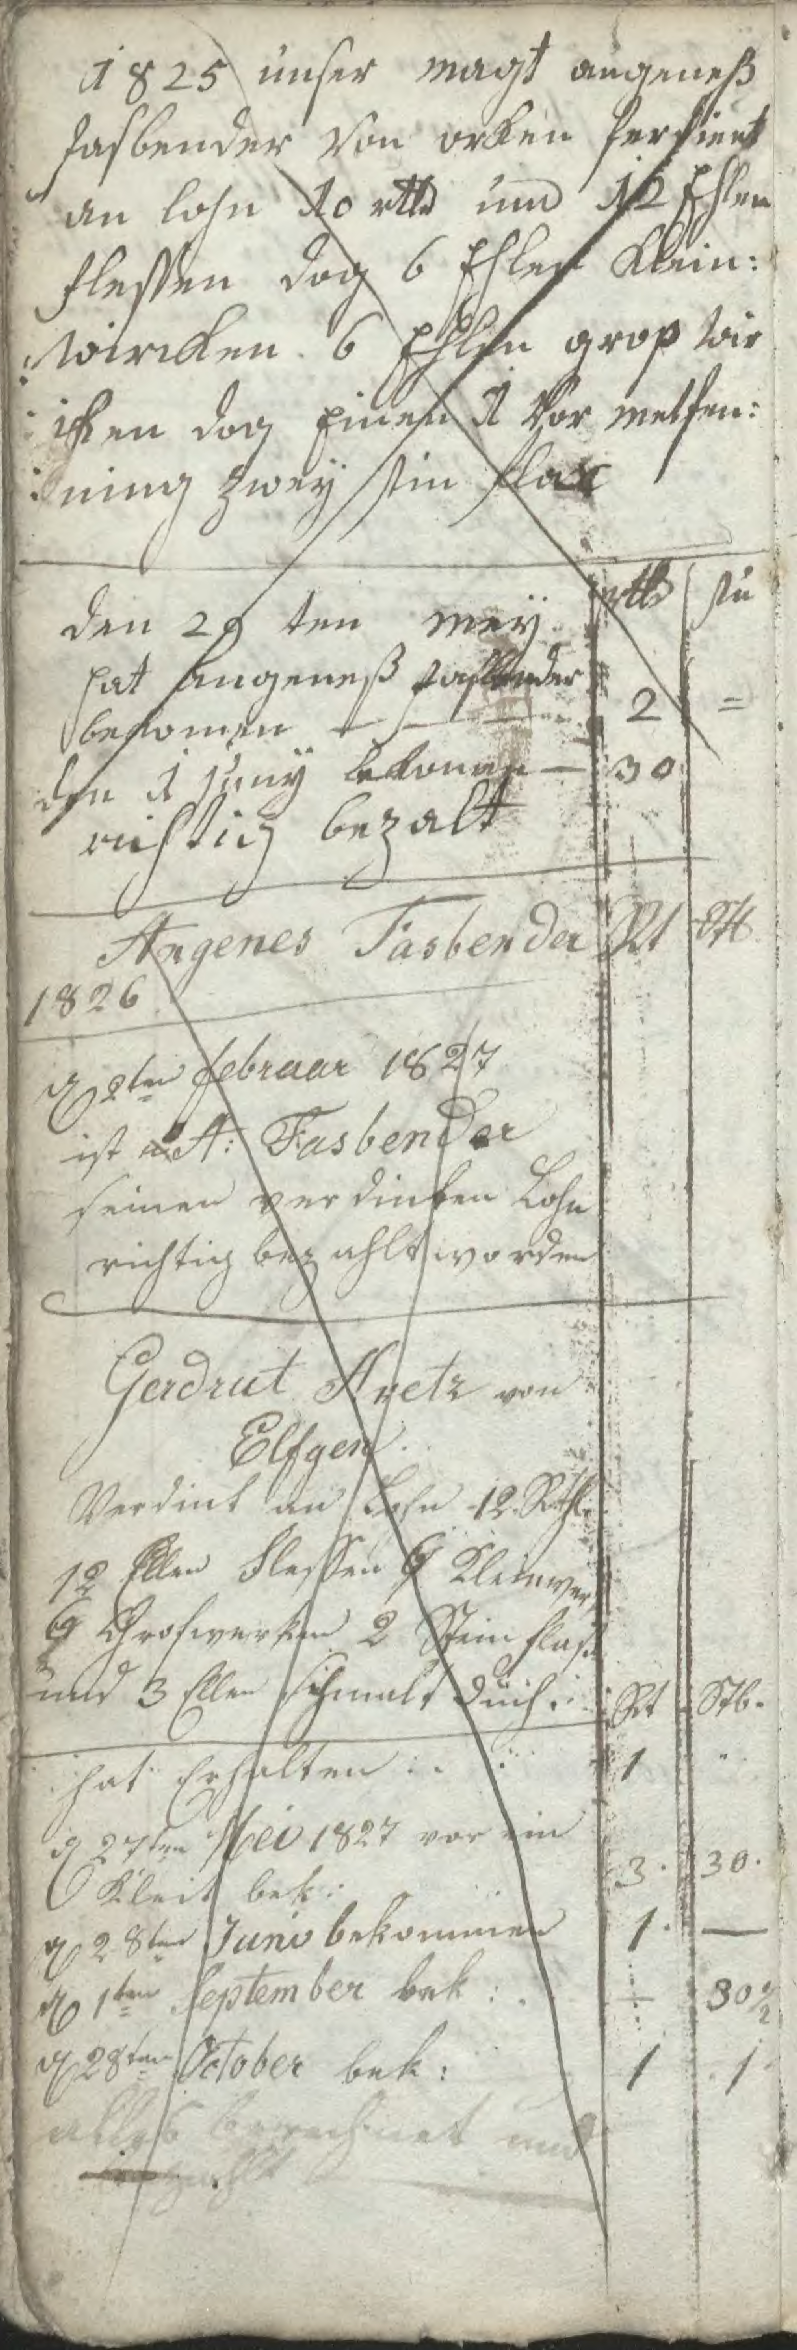 1825 unser magt angeneß
fasbender von orken ferdient
an lohn 10 rtlr und 12 Ehlen
flessen dog 6 Ehlen klein:
wircken 6 Ehlen grop wir
icken dog Einen 1 vor
ning zwey stin flax
rtlr stu
den 29 ten mey
hat angeneß fasbender
bekomen — 2 =
den 1 juny bekomen — 30
richtig bezalt
Angenes Fasbender Rt Stb
1826
d 2ten februar 1827
ist A: Fasbender
seinen verdinten Lohn
richtig bezahlt worden
Gerdrut Aretz von
Elfgen
Verdint an Lohn 12 Rthl.
12 Ellen flessen 6 Kleinwer
6 Grofwerken 2 Stein flaß
und 3 Ellen schmalt duch. Rt Stb.
hat Erhalten : . : 1 "
d 27ten Mei 1827 vor ein
Kleit bek: 3. 30.
d 28ten Junio bekommen 1. —
d 1ten September bek: . — 30 1/2
d 28ten October bek: 1 1
alles berechnet und
bezahlt